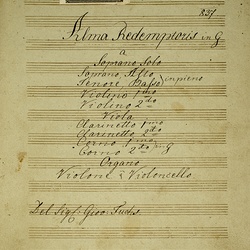 831
Alma Redemptoris in G
a
Soprano Solo
Soprano, Alto
Tenore Basso in pieno
Violino 1mo
Violino 2do
Viola
Clarinetto 1mo
Clarinetto 2do
Corno 1mo
Corno 2do in G
Organo
Violone e Violoncello
Del Sigl: Giov: Fuchs.